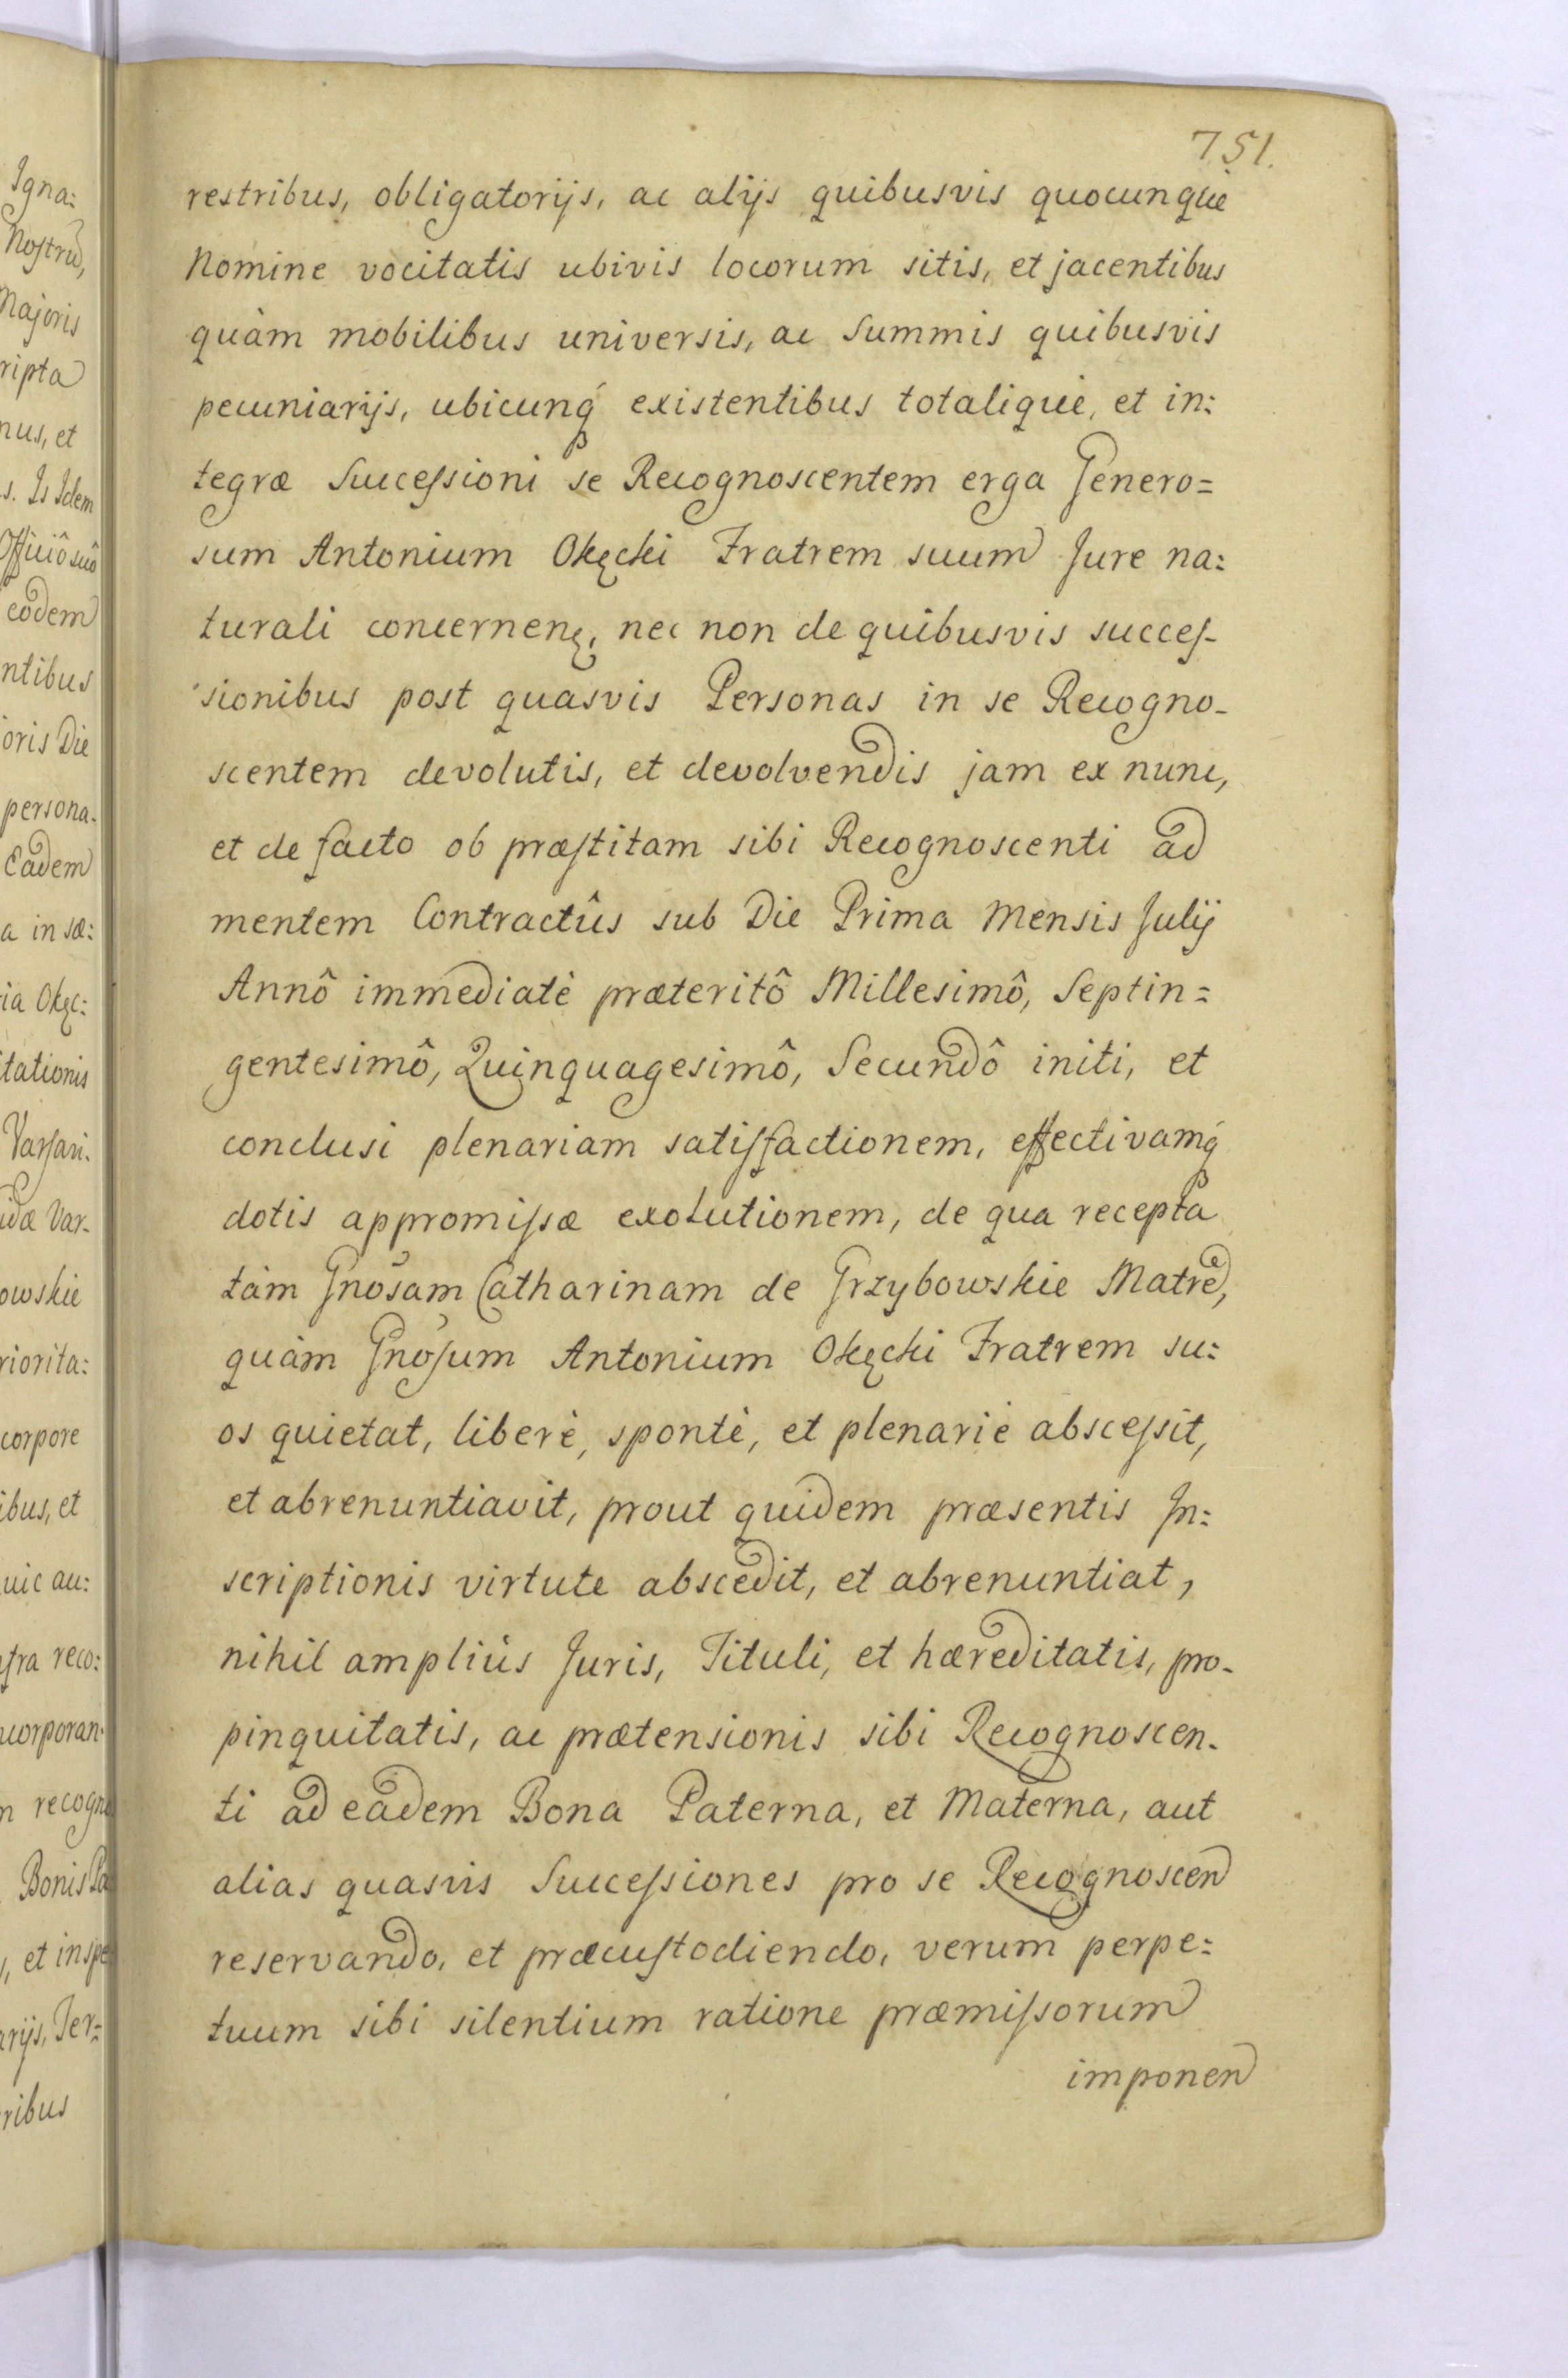 751.
restribus, obligatorijs, ac alijs quibusvis quocunque
Nomine vocitatis ubivis locorum sitis, et jacentibus
quàm mobilibus universis, ac Summis quibusvis
pecuniarijs, ubicunq́ existentibus totalique, et in:
tegræ Succeſsioni se Recognoscentem erga Genero=
sum Antonium Okęcki Fratrem suum Jure na:
turali concernenꝫ, nec non de quibusvis succeſ-
sionibus post quasvis Personas in se Recogno-
scentem devolutis, et devolvendis jam ex nunc,
et de facto ob præſtitam sibi Recognoscenti ad
mentem Contractûs sub Die Prima Mensis Julij
Annô immediatè præteritô Millesimô, Septin=
gentesimô, Quinquagesimô, Secundô initi, et
conclusi plenariam satiſfactionem, effectivamq́
dotis appromiſsæ exolutionem, de qua recepta
tàm Gnosam Catharinam de Grzybowskie Matre,
quàm Gnoſum Antonium Okęcki Fratrem su:
os quietat, liberè, spontè, et plenariè absceſsit,
et abrenuntiavit, prout quidem præsentis In:
scriptionis virtute abscedit, et abrenuntiat,
nihil ampliùs Juris, Tituli, et hæreditatis, pro-
pinquitatis, ac prætensionis sibi Recognoscen-
ti ad eadem Bona Paterna, et Materna, aut
alias quasvis Succeſsiones pro se Recognoscen
reservando, et præcuſtodiendo, verum perpe:
tuum sibi silentium ratione præmiſsorum
imponen
Igna:
Noſtru,
Majoris
ripta
nus, et
s. Is Idem
Officiô suô
eodem
ntibus
oris Die
persona-
Eadem
a in sæ:
ia Okęc:
tationis
Varſavi.
idæ Var-
owskie
riorita:
corpore
ibus, et
uic au:
fra reco:
ncorporan-
n recogn
Bonis Pa
, et inspe
arijs, Ter=
ribus